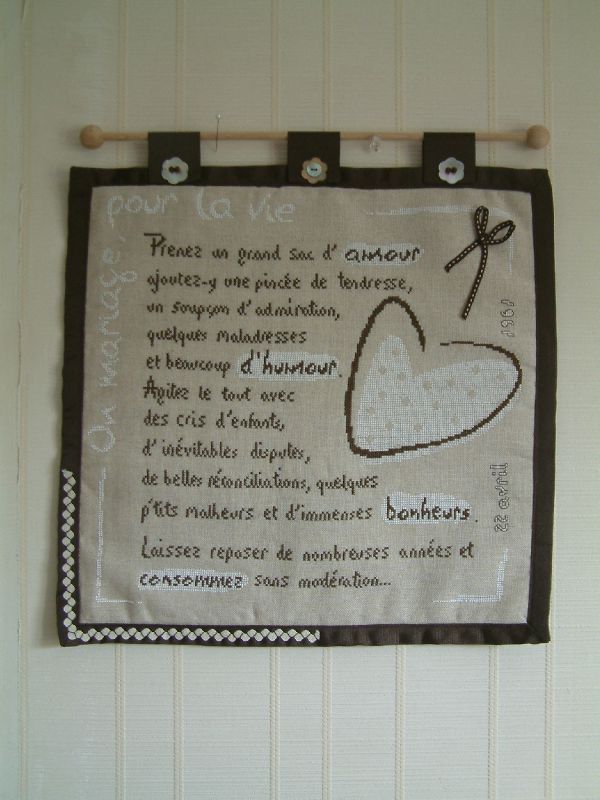 Un mariage,
pour la vie
Prenez un grand sac d'amour
ajoutez-y une pincée de tendresse,
un soupçon d'admiration,
quelques maladresses
et beaucoup d'humour.
Agitez le tout avec
des cris d'enfants,
d'inévitables disputes,
de belles réconciliations, quelques
p'tits malheurs et d'immenses bonheurs.
Laissez reposer de nombreuses années et
consommez sans modération...
22 avril
1961